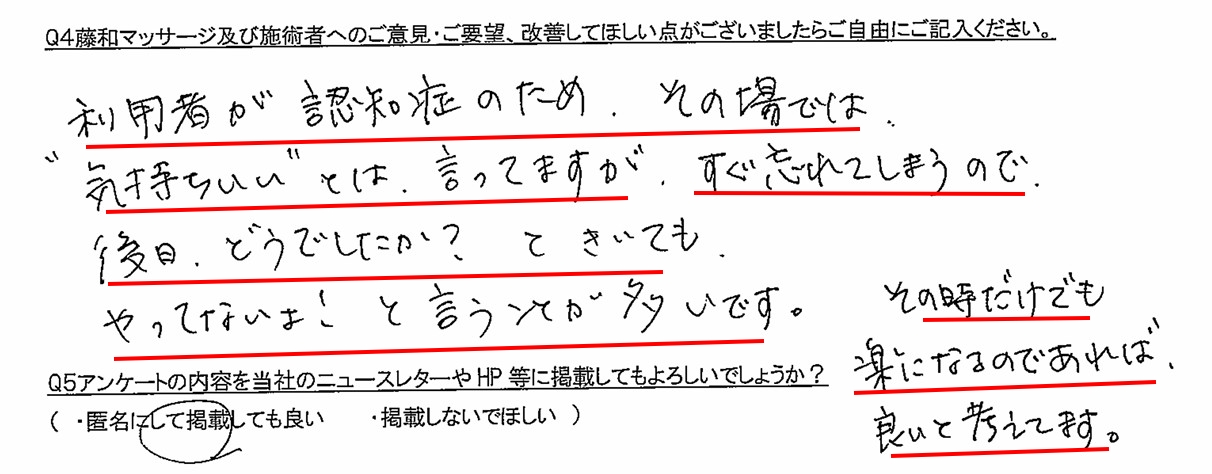 Q4藤和マッサージ及び施術者へのご意見・ご要望、改善してほしい点がございましたらご自由にご記入ください。
利用者が認知症のため、その場では、
“気持ちいい”とは、言ってますが、すぐ忘れてしまうので、
後日、どうでしたか？ときいても、
やってないよ！と言うことが多いです。
その時だけでも
楽になるのであれば、
良いと考えてます。
Q5アンケートの内容を当社のニュースレターやHP等に掲載してもよろしいでしょうか？
（・匿名にして掲載しても良い　・掲載しないでほしい）